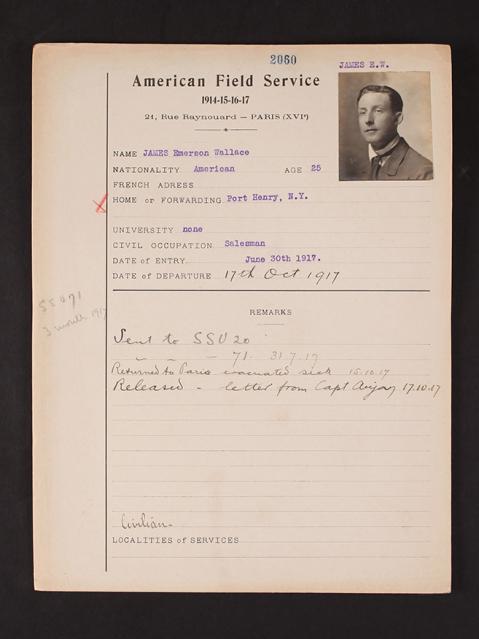 2060
JAMES E.W.
American Field Service
1914-15-16-17
21, Rue Raynouard — PARIS (XVIe)
NAME JAMES Emerson Wallace
NATIONALITY American AGE 25
FRENCH ADRESS
x HOME or FORWARDING Port Henry, N.Y.
UNIVERSITY none
CIVIL OCCUPATION Salesman
DATE of ENTRY June 30th 1917.
DATE of DEPARTURE 17th Oct 1917
SSU 71
3 months 1917
REMARKS
Sent to SSU 20
" " - 71. 31.7.17
Returned to Paris evacuated sick 15.10.17
Released - letter from Capt 17.10.17
Civilian-
LOCALITIES of SERVICES